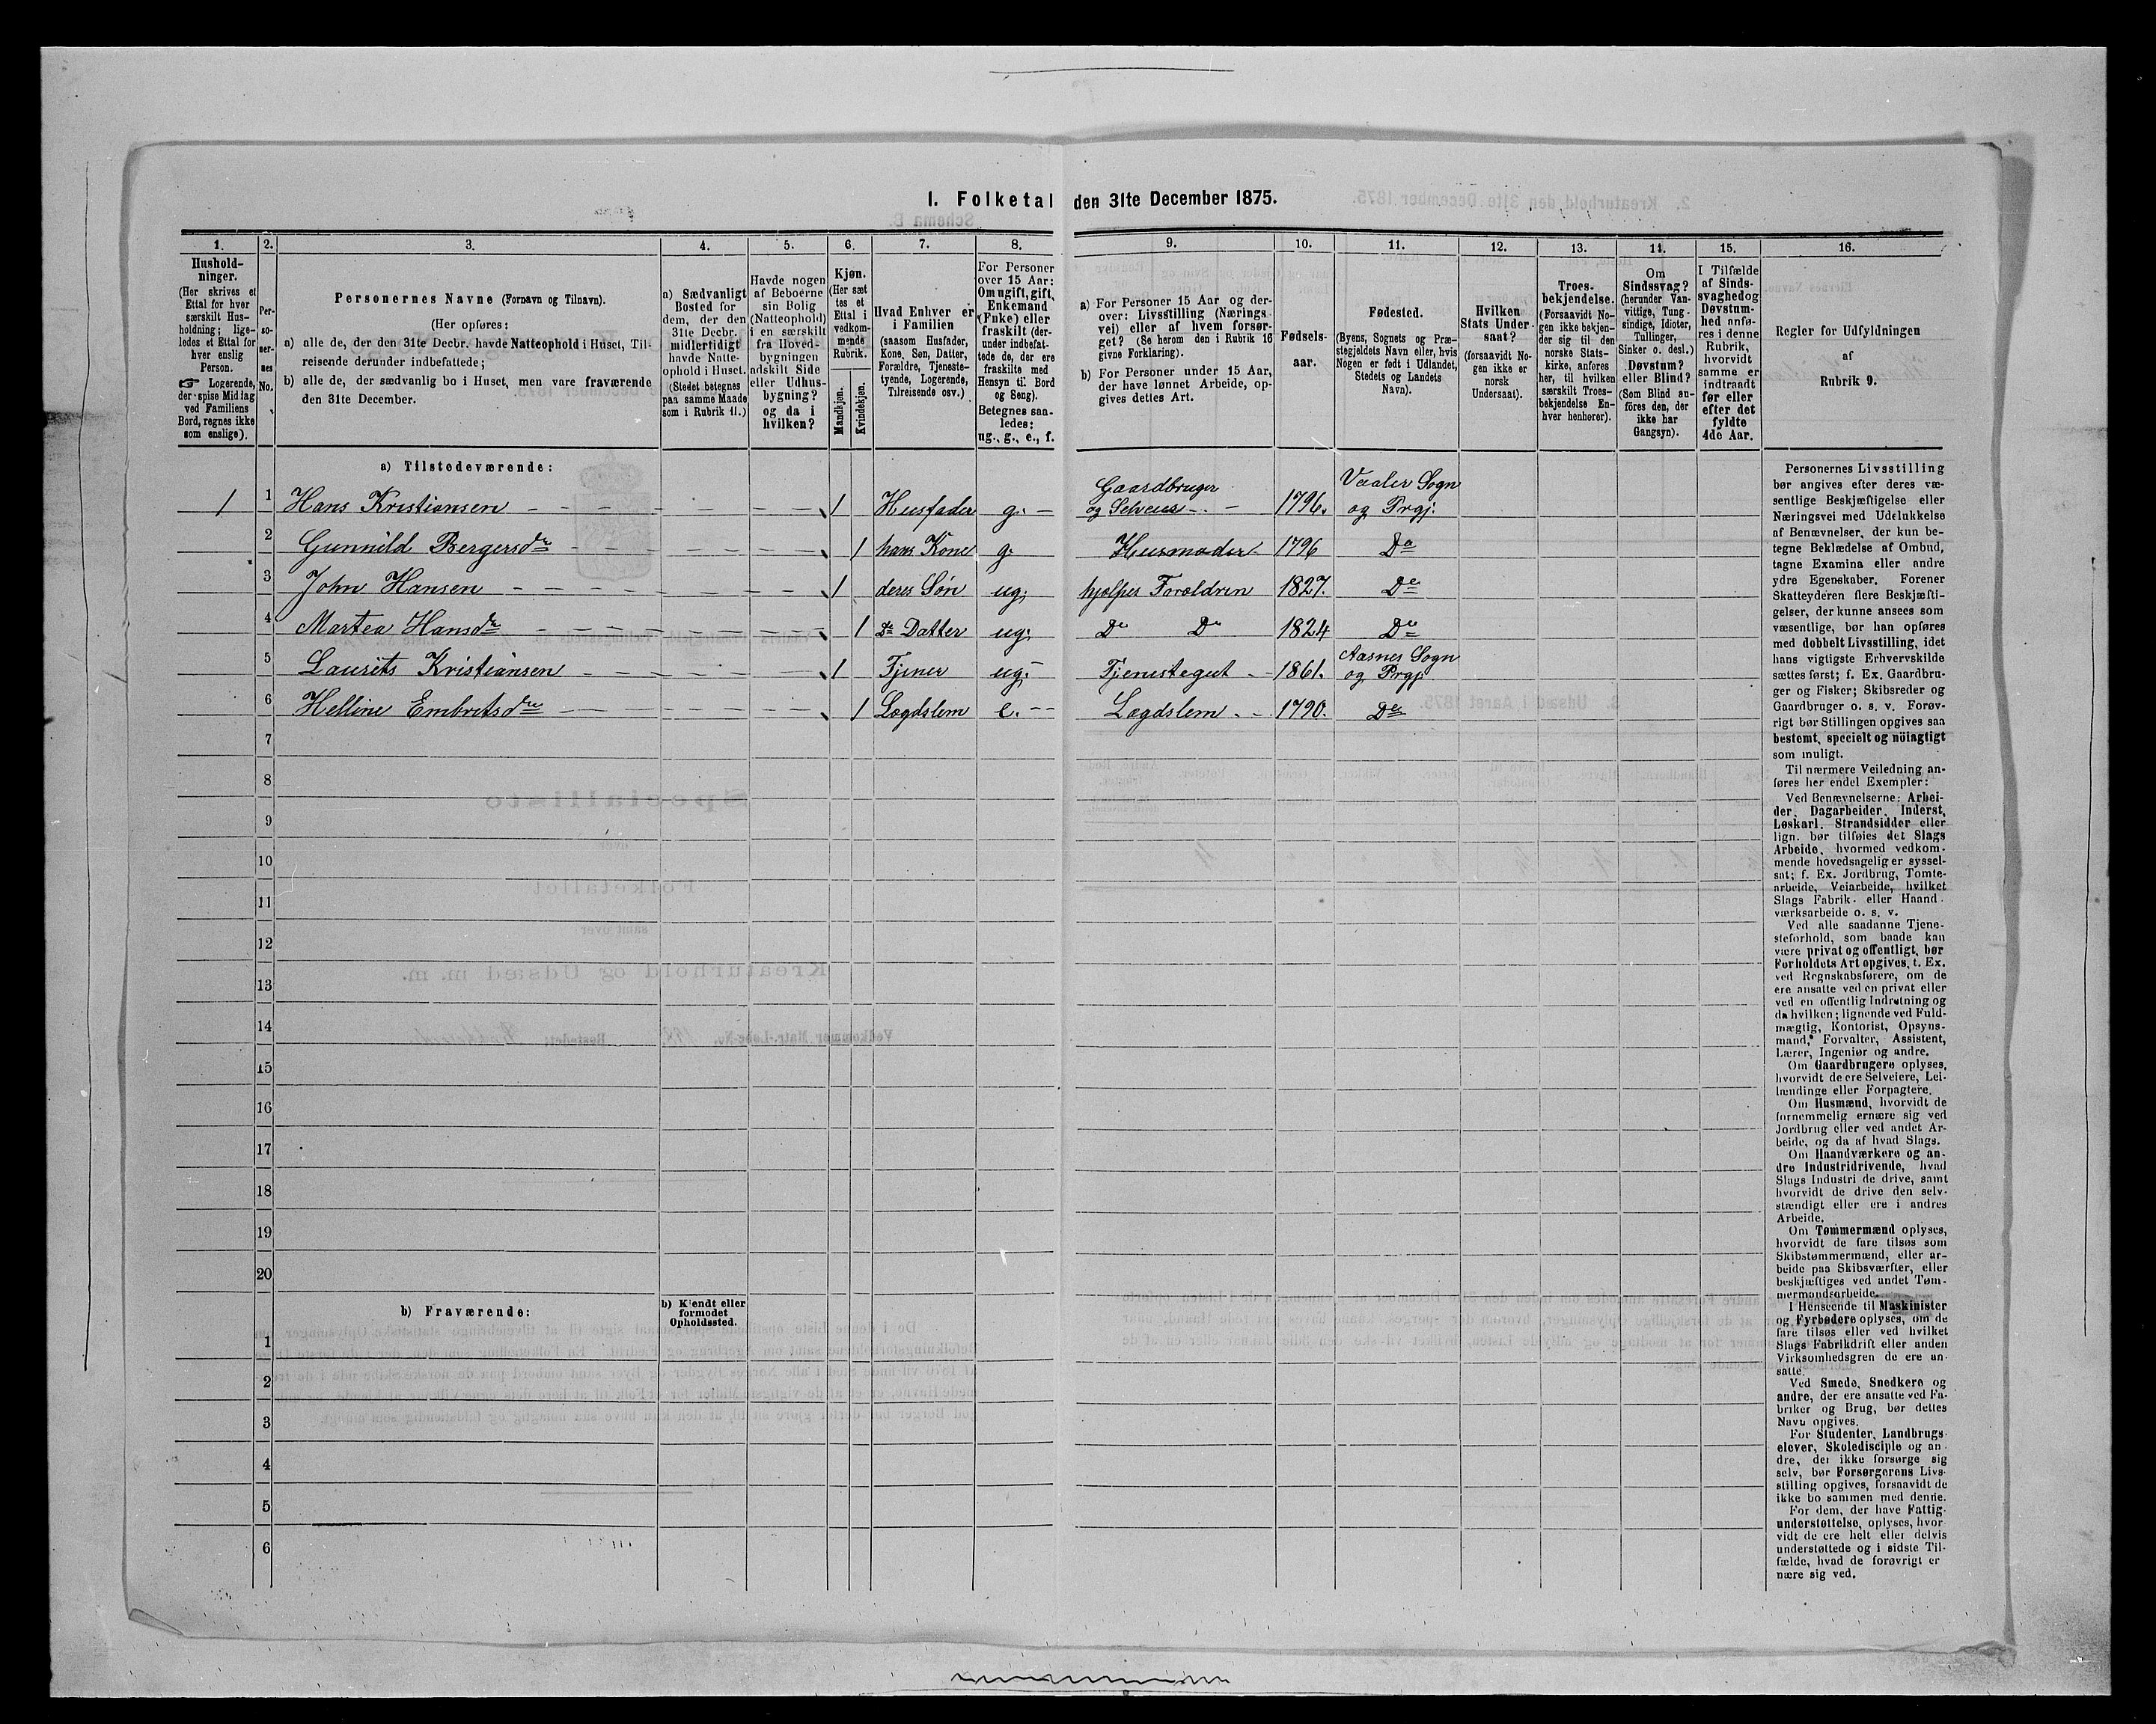 1. Folketal den 31te December 1875.
1. 2. 3. 4. 5. 6. 7. 8. 9. 10. 11. 12. 13. 14. 15. 16.
Hushold-
ninger.
(Her skrives et
Ettal for hver
særskilt Hus-
holdning; lige-
ledes et Ettal for
hver enslig
Person.
☞ Logerende,
der spise Middag
ved Familiens
Bord, regnes ikke
som enslige).
Per-
so-
ner-
nes
No.
Personernes Navne (Fornavn og Tilnavn).
(Her opføres:
a) alle de, der den 31te Decbr. havde Natteophold i Huset, Til-
reisende derunder indbefattede;
b) alle de, der sædvanlig bo i Huset, men vare fraværende
den 31te December.
a) Sædvanligt
Bosted for
dem, der den
31te Decbr.
midlertidigt
havde Natte-
ophold i Huset.
(Stedet betegnes
paa samme Maade
som i Rubrik 11.)
Havde nogen
af Beboerne
sin Bolig
(Natteophold)
i en særskilt
fra Hoved-
bygningen
adskilt Side
eller Udhus-
bygning?
og da i
hvilken?
Kjøn.
(Her sæt
tes et
Ettal i
vedkom-
mende
Rubrik.
Mandkjøn.
Kvindekjøn.
Hvad Enhver er
i Familien
(saasom Husfader,
Kone, Søn, Datter,
Forældre, Tjeneste-
tyende, Logerende,
Tilreisende osv.)
For Personer
over 15 Aar:
Om ugift, gift,
Enkemand
(Enke) eller
fraskilt (der-
under indbefat-
tede de, der ere
fraskilte med
Hensyn til Bord
og Seng).
Betegnes saa-
ledes:
ug., g., e., f.
a) For Personer 15 Aar og der-
over: Livsstilling (Nærings
vei) eller af hvem forsør-
get? (Se herom den i Rubrik 16
givne Forklaring).
b) For Personer under 15 Aar,
der have lønnet Arbeide, op-
gives dettes Art.
Fødsels-
aar.
Fødested.
(Byens, Sognets og Præ-
stegjeldets Navn eller, hvis
Nogen er født i Udlandet,
Stedets og Landets
Navn).
Hvilken
Stats Under-
saat?
(forsaavidt No-
gen ikke er
norsk
Undersaat).
Troes-
bekjendelse.
(Forsaavidt No
gen ikke bekjen-
der sig til den
norske Stats-
kirke, anføres
her, til hvilken
særskilt Troes-
bekjendelse En-
hver henhører).
Om
Sindssvag?
(herunder Van-
vittige, Tung-
sindige, Idioter,
Tullinger,
Sinker o. desl.)
Døvstum?
eller Blind?
(Som Blind an-
føres den, der
ikke har
Gangsyn).
I Tilfælde
af Sinds-
svaghed og
Døvstum-
hed anfø-
res i denne
Rubrik,
hvorvidt
samme er
indtraadt
før eller
efter det
fyldte
4de Aar.
Regler for Udfyldningen
af
Rubrik 9.
a) Tilstedeværende:
1 1 Hans Kristiansen 1 Husfader g. Gaardbruger og Selveier 1796. Vaaler Sogn og Prgj.
2 Gunnild Bergersdr 1 hans Kone g. Husmoder 1796 Do
3 John Hansen 1 deres Søn ug. hjælper Forældren 1827. Do
4 Martea Hansdr 1 Do Datter ug. Do Do 1824 Do
5 Laurits Kristiansen 1 Tjener ug. Tjenestegut 1861. Aasnes Sogn og Prgj
6 Helline Embretsdr 1 Lægdslem e. Lægdslem 1790. Do
7
8
9
10
11
12
13
14
15
16
17
18
19
20
b) Fraværende:
b) Kjendt eller
formodet
Opholdssted.
1
2
3
4
5
6
Personernes Livsstilling
bør angives efter deres væ-
sentlige Beskjæftigelse eller
Næringsvei med Udelukkelse
af Benævnelser, der kun be-
tegne Beklædelse af Ombud,
tagne Examina eller andre
ydre Egenskaber. Forener
Skatteyderen flere Beskjæfti-
gelser, der kunne ansees som
væsentlige, bør han opføres
med dobbelt Livsstilling, idet
hans vigtigste Erhvervskilde
sættes først; f. Ex. Gaardbru-
ger og Fisker; Skibsreder og
Gaardbruger o. s. v. Forøv-
rigt bør Stillingen opgives saa
bestemt, specielt og nöiagtigt
som muligt.
Til nærmere Veiledning an-
føres her endel Exempler:
Ved Benævnelserne: Arbei-
der, Dagarbeider, Inderst,
Løskarl, Strandsidder eller
lign. bør tilføies det Slags
Arbeide, hvormed vedkom-
mende hovedsagelig er syssel-
sat; f. Ex. Jordbrug, Tomte-
arbeide, Veiarbeide, hvilket
Slags Fabrik- eller Haand-
værksarbeide o. s. v.
Ved alle saadanne Tjene-
steforhold, som baade kan
være privat og offentligt, bør
Forholdets Art opgives, t. Ex.
ved Regnskabsførere, om de
ere ansatte ved en privat eller
ved en offentlig Indretning og
da hvilken; lignende ved Fuld-
mægtig, Kontorist, Opsyns-
mand, Forvalter, Assistent,
Lærer, Ingeniør og andre.
Om Gaardbrugere oplyses,
hvorvidt de ere Selveiere, Lei-
lændinge eller Forpagtere.
Om Husmænd, hvorvidt de
fornemmelig ernære sig ved
Jordbrug eller ved andet Ar-
beide, og da af hvad Slags.
Om Haandværkere og an-
dre Industridrivende, hvad
Slags Industri de drive, samt
hvorvidt de drive den selv-
stændigt eller ere i andres
Arbeide.
Om Tømmermænd oplyses,
hvorvidt de fare tilsøs som
Skibstømmermænd, eller ar-
beide paa Skibsværfter, eller
beskjæftiges ved andet Tøm-
mermandsarbeide.
I Henseende til Maskinister
og Fyrbødere oplyses, om de
fare tilsøs eller ved hvilket
Slags Fabrikdrift eller anden
Virksomhedsgren de ere an-
satte.
Ved Smede, Snedkere og
andre, der ere ansatte ved Fa-
briker og Brug, bør dettes
Navn opgives.
For Studenter, Landbrugs-
elever, Skoledisciple og an-
dre, der ikke forsørge sig
selv, bør Forsørgerens Livs-
stilling opgives, forsaavidt de
ikke bo sammen med denne.
For dem, der have Fattig-
understøttelse, oplyses, hvor-
vidt de ere helt eller delvis
understøttede og i sidste Til-
fælde, hvad de forøvrigt er
nære sig ved.